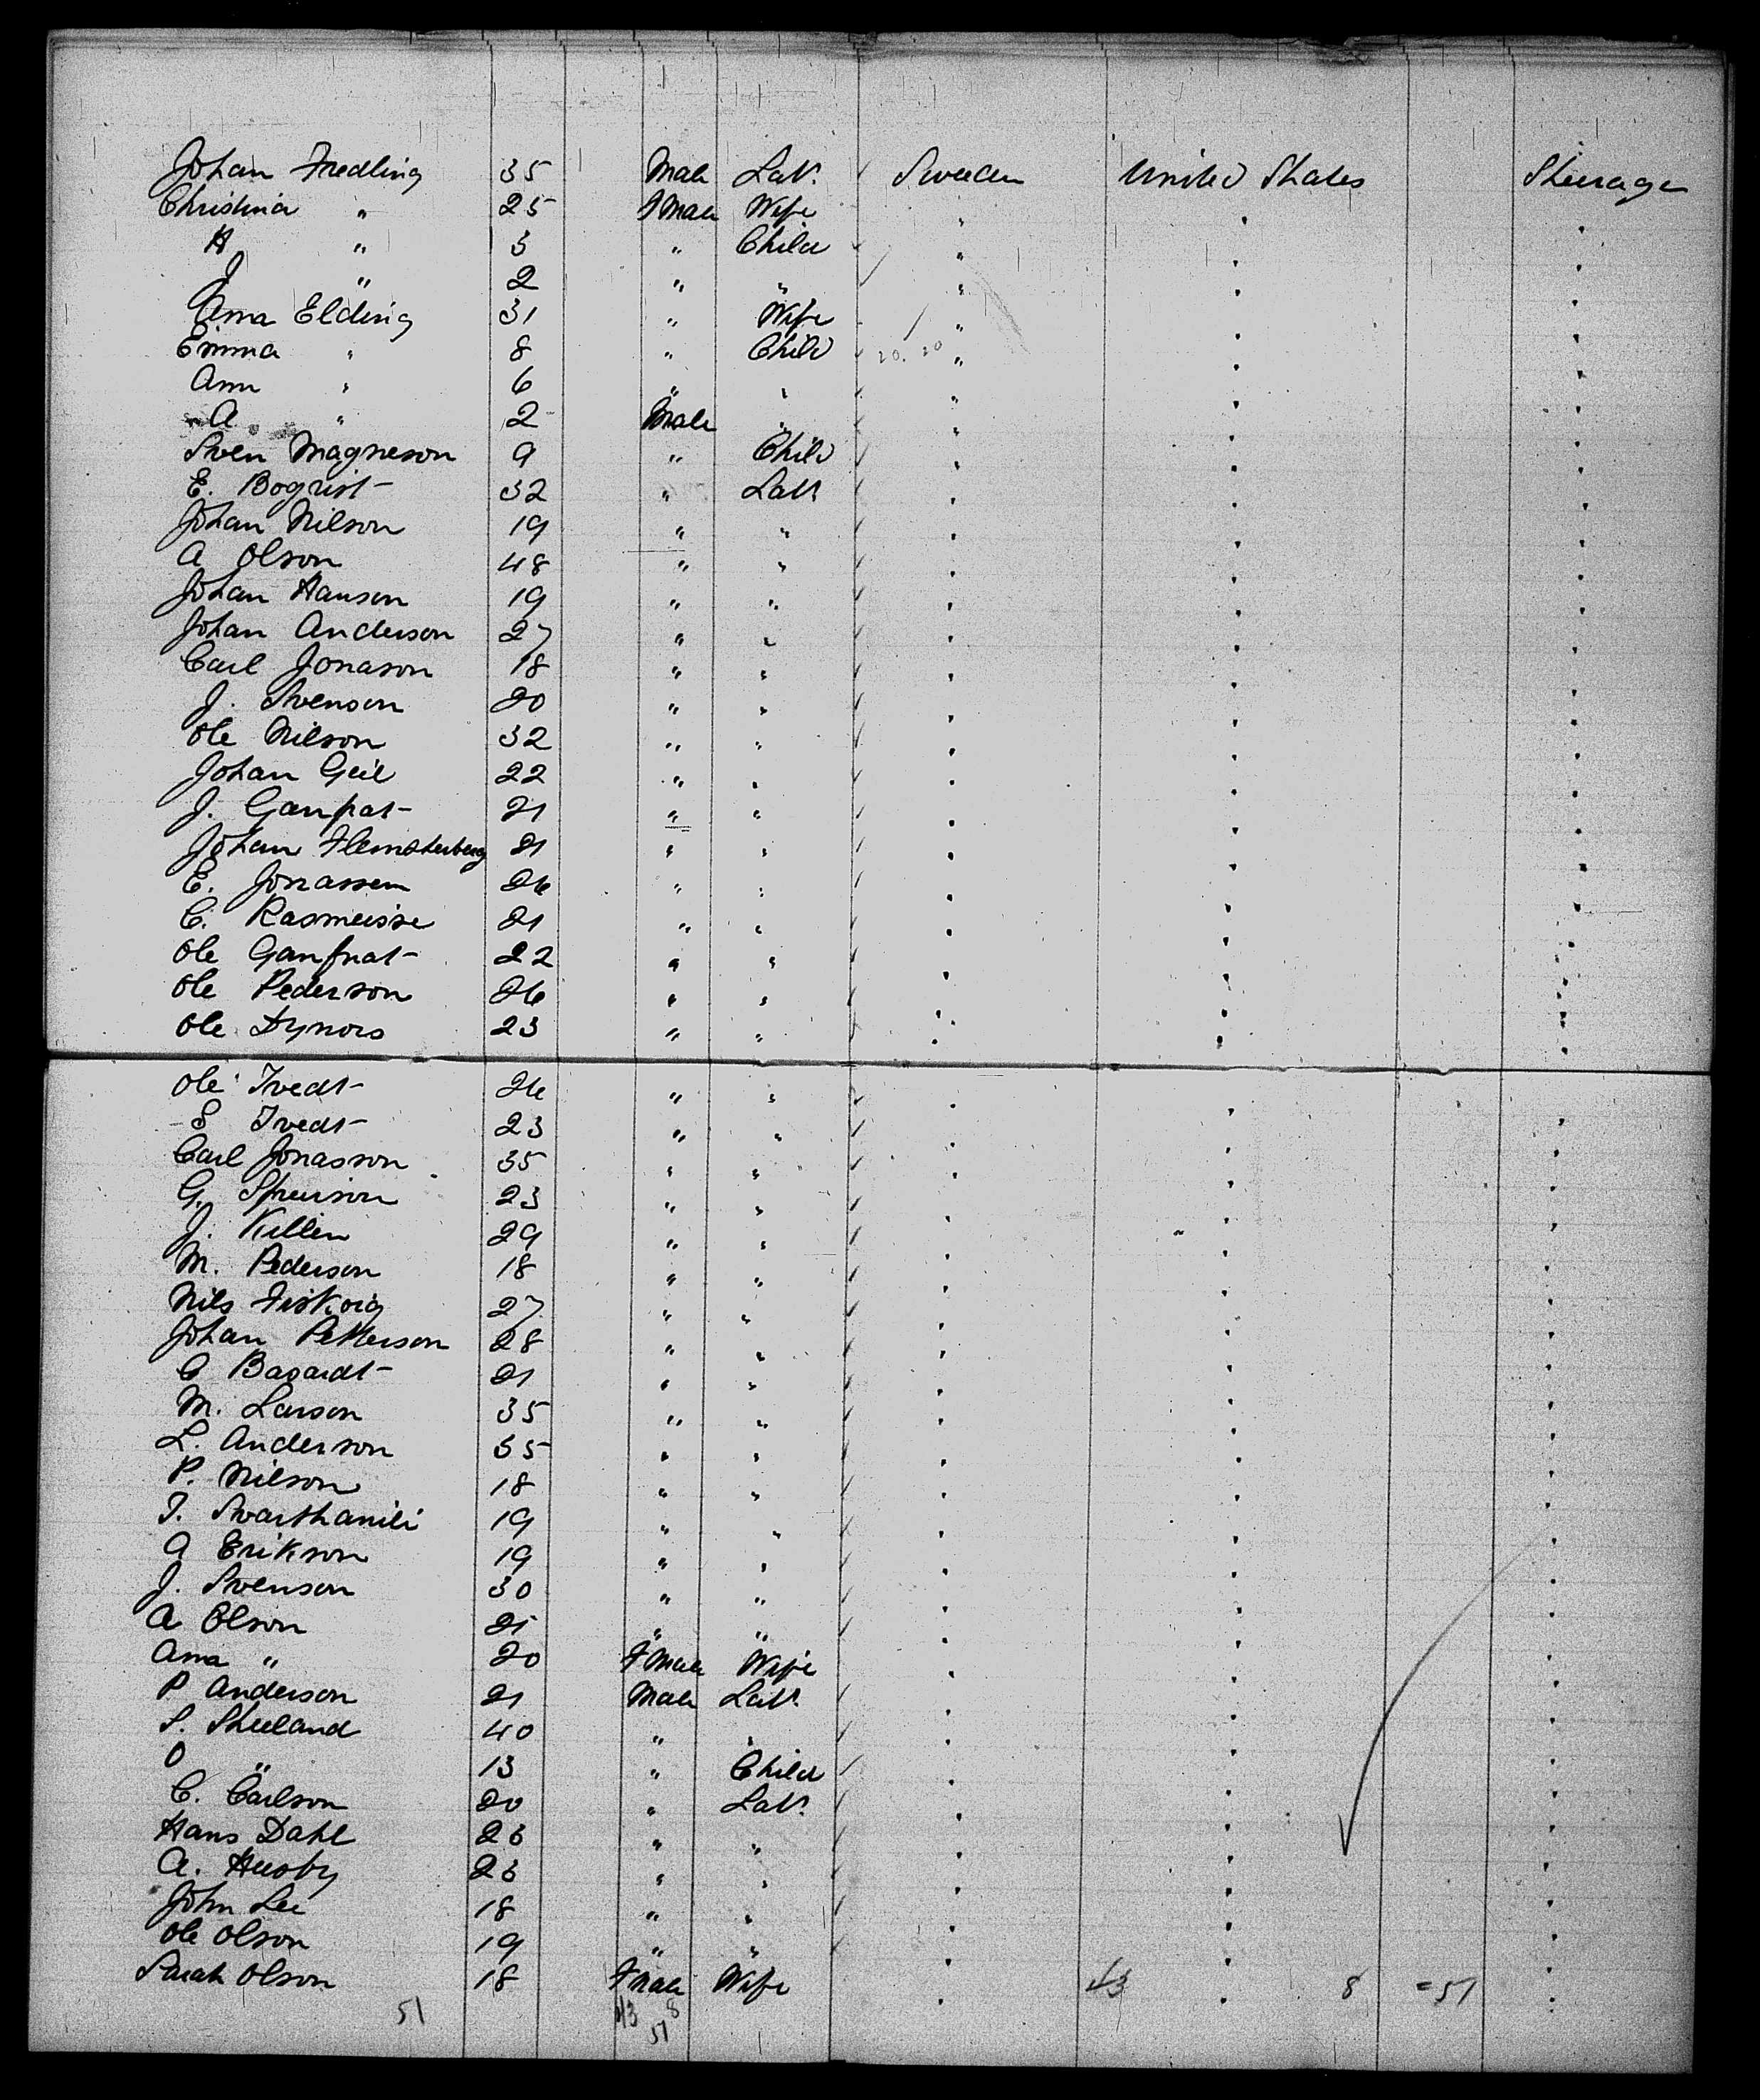 Johan Fredling 35 Male Lab. Sweden United States Steerage
Christina " 25 FMale Wife " " "
A " 3 " Child " " "
J " 2 " " " " "
Anna Elding 31 " Wife " " "
Emma " 8 " Child 20. 20 " " "
Ann " 6 " " " " "
A " 2 Male " " " "
Sven Magneson 9 " Child " " "
E. Bogrist 32 " Lab. " " "
Johan Nilson 19 " " " " "
A Olson 48 " " " " "
Johan Hanson 19 " " " " "
Johan Anderson 27 " " " " "
Carl Jonason 18 " " " " "
J. Svenson 20 " " " " "
Ole Nilson 32 " " " " "
Johan Geil 22 " " " " "
J. 21 " " " " "
Johan 21 " " " " "
E. Jonassen 26 " " " " "
C. 21 " " " " "
Ole 22 " " " " "
Ole Pederson 26 " " " " "
Ole 23 " " " " "
Ole Tvedt 26 " " " " "
S Tvedt 23 " " " " "
Carl Jonasson 35 " " " " "
G. 23 " " " " "
J. Killin 29 " " " " "
M. Pederson 18 " " " " "
Nils 27 " " " " "
Johan Petterson 28 " " " " "
C 21 " " " " "
M. Larson 35 " " " " "
L. Anderson 35 " " " " "
P. Nilson 18 " " " " "
T. 19 " " " " "
A Erikson 19 " " " " "
J. Svenson 30 " " " " "
A Olson 21 " " " " "
Anna " 20 FMale Wife " " "
P Anderson 21 Male Lab. " " "
S. 40 " " " " "
O " 13 " Child " " "
C. Carlson 20 " Lab. " " "
Hans Dahl 23 " " " " "
A. Husby 23 " " " " "
John Lee 18 " " " " "
Ole Olson 19 " " " " "
Sarah Olson 18 FMale Wife " 43 " 8 =51 "
51 43 8
51